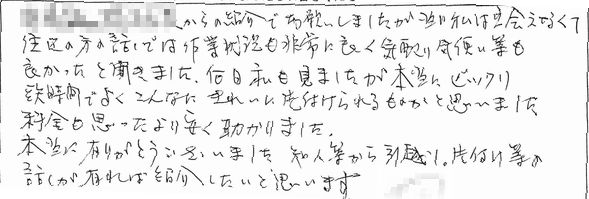 からの紹介でお願いしましたが当日私は立会えなくて
住込の方の話しでは作業状況も非常に良く気取り気使い等も
良かったと聞きました。後日私も見ましたが本当にビックリ
短時間でよくこんなにきれいに片付けられるものかと思いました
料金も思ったより安く助かりました。
本当に有りがとうございました 知人等から引越し。片付け等の
話しが有れば紹介したいと思います